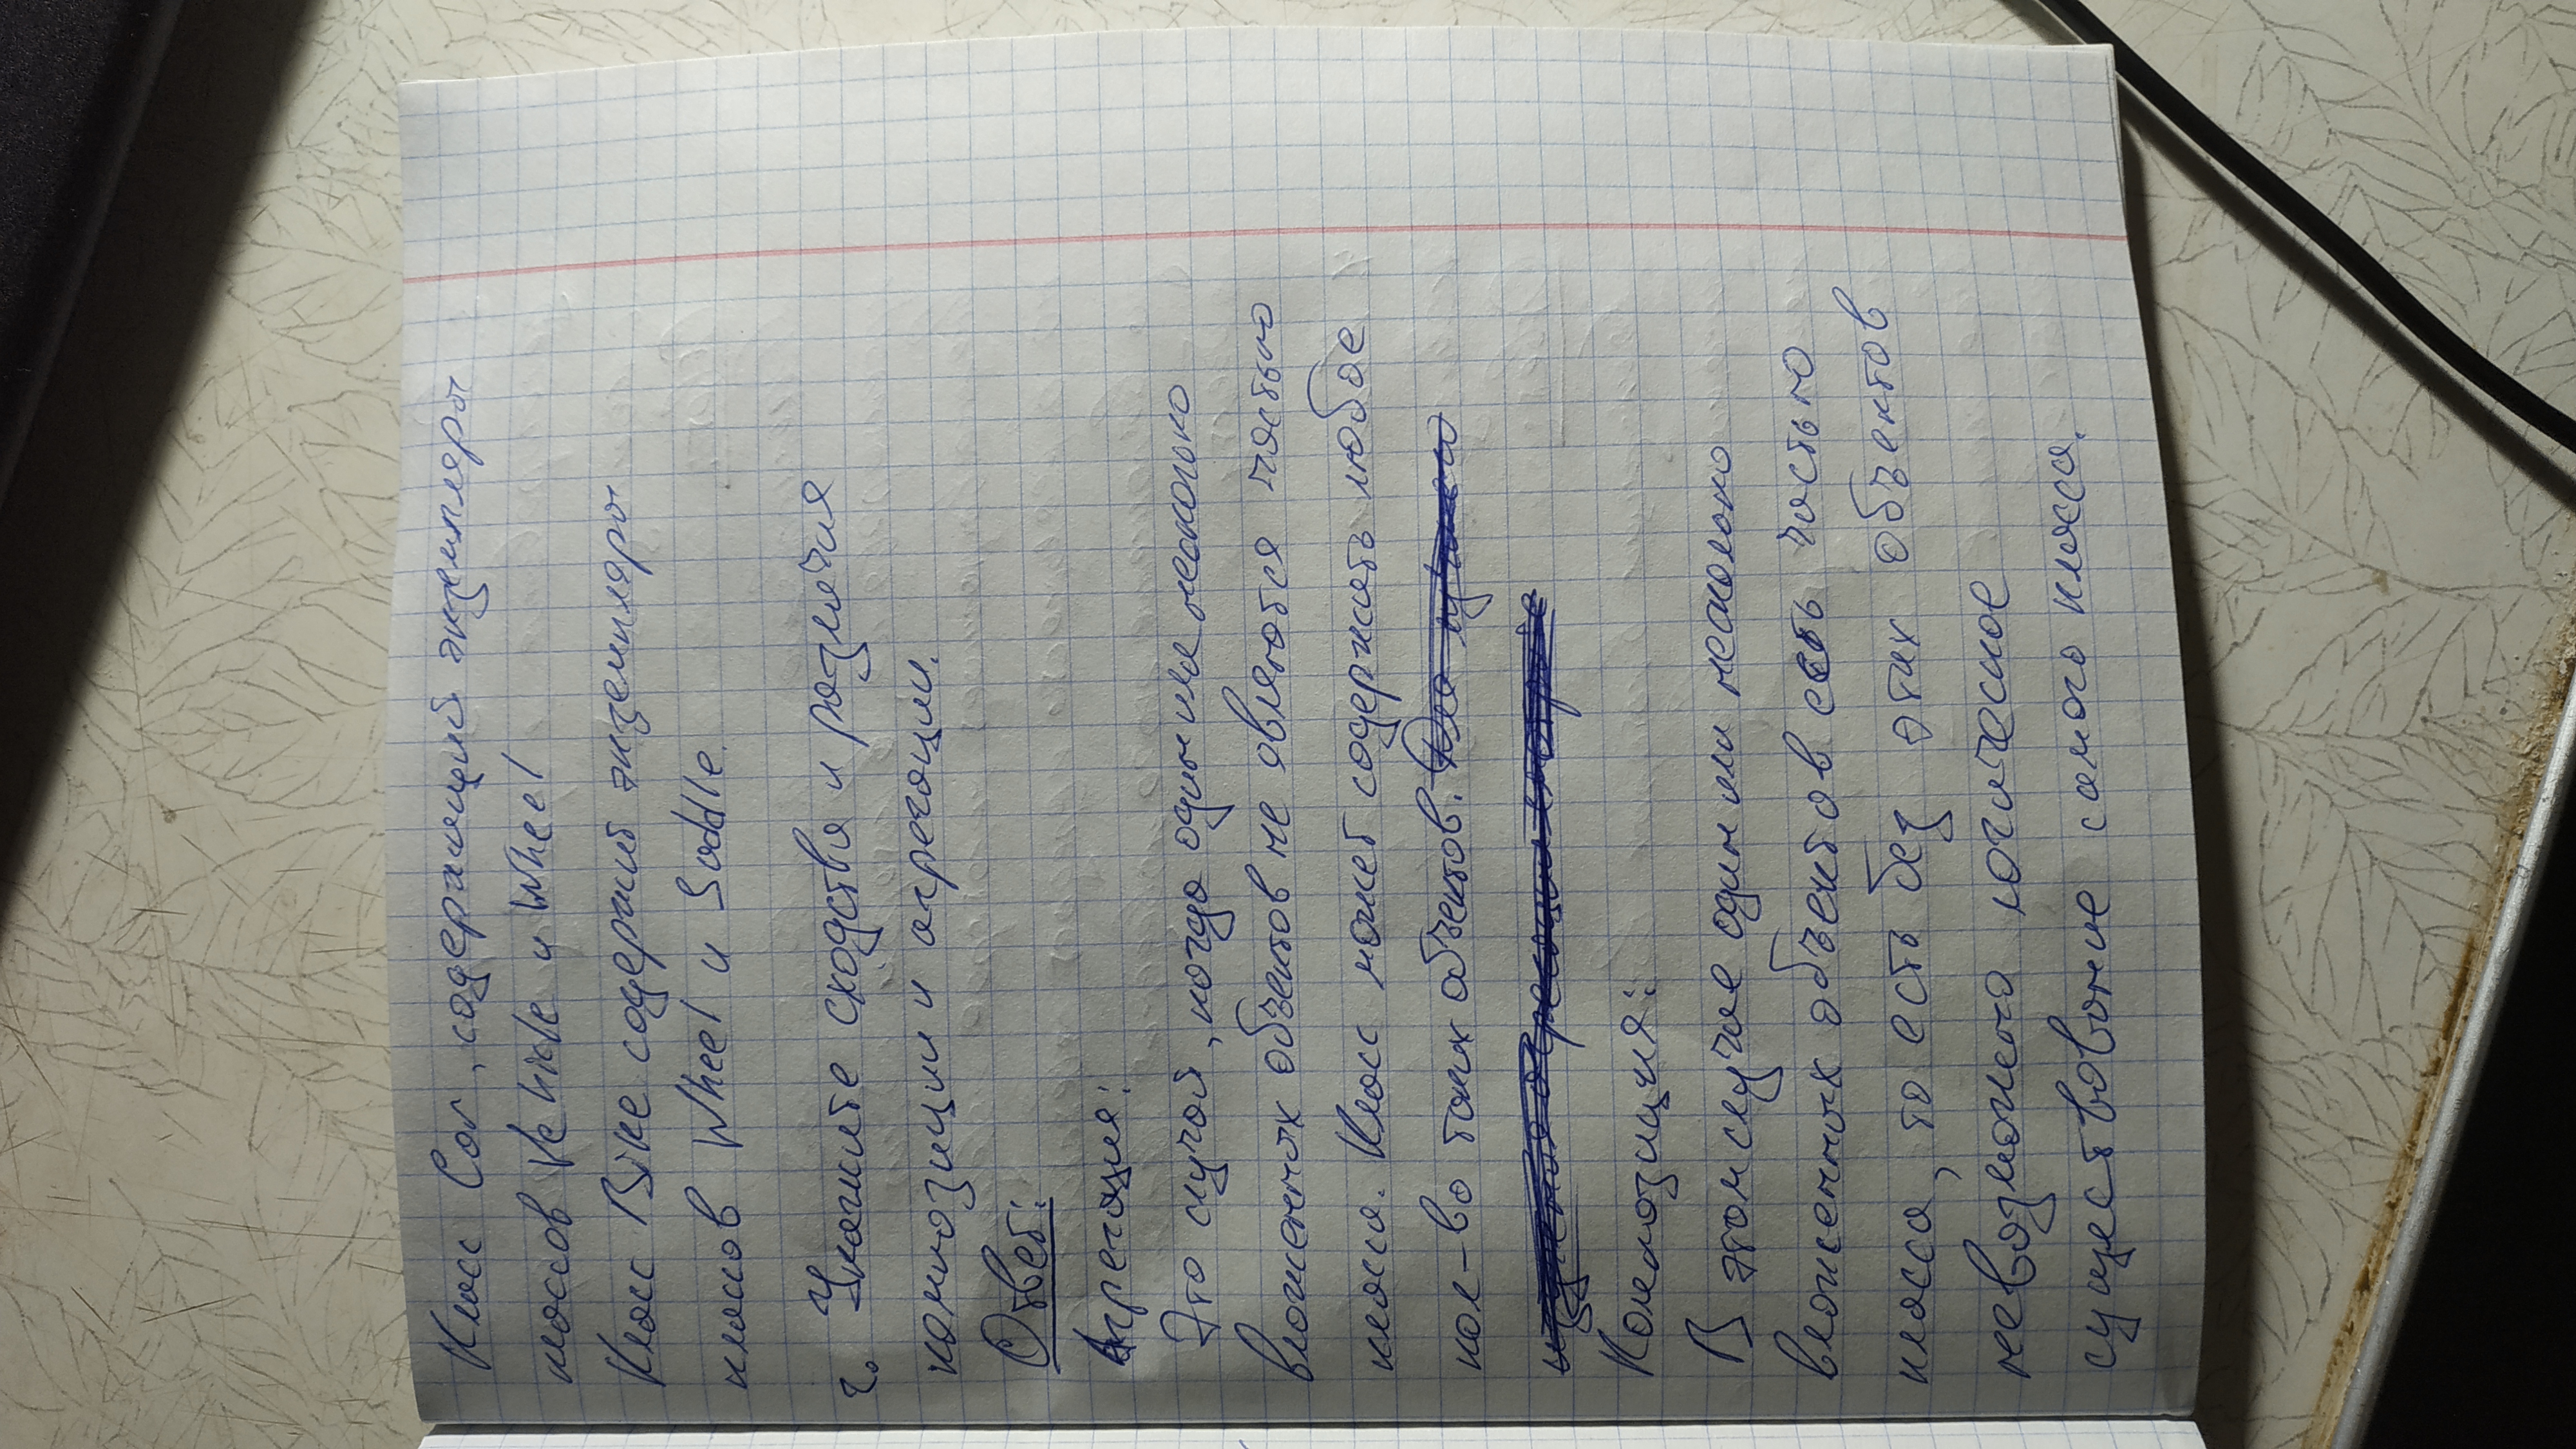 Класс Car, содержащий экземпляры
классов Vehicle и Wheel
Класс Bike содержит экземпляры
классов Wheel и Saddle.
2. Укажите сходства и различия
композиции и агрегации.
Ответ:
Агрегация:
Это случай, когда один или несколько
вложенных объектов не являются частью
класса. Класс может содержать любое
кол-во таких объектов.
Композиция:
В этом случае один или несколько
вложенных объектов есть частью
класса, то есть без этих объектов
невозможно логическое
существование самого класса.